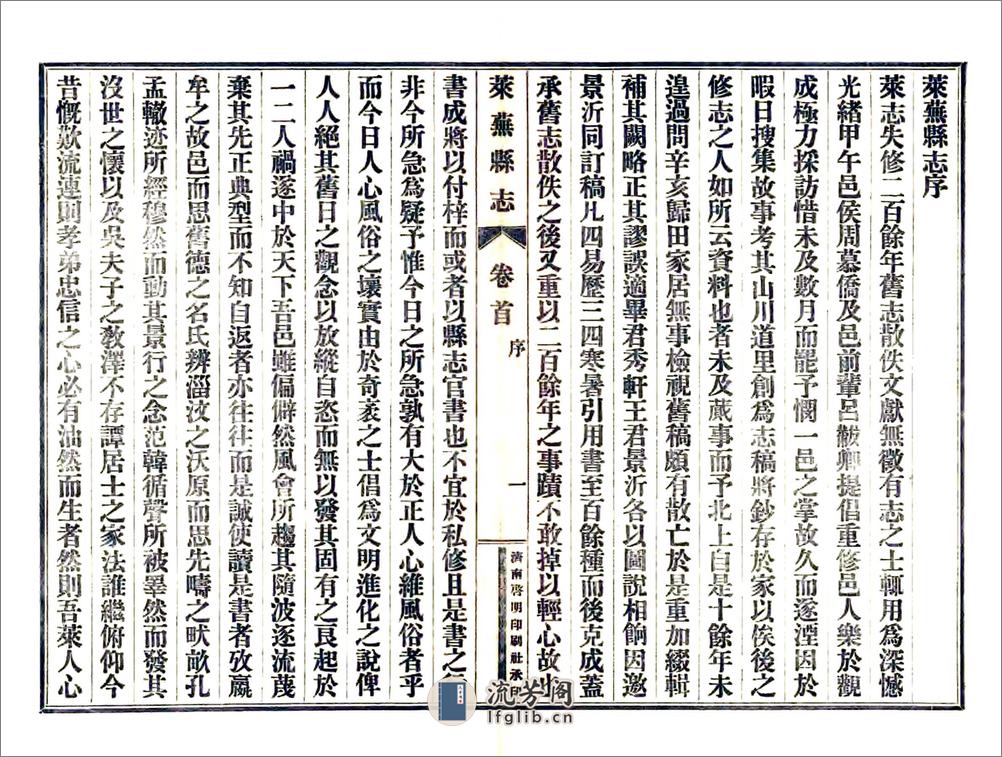 萊蕪縣志序
萊志失修二百餘年舊志散佚文獻無徵有志之士輒用爲深憾
光緒甲午邑侯周慕僑及邑前輩呂黻卿提倡重修邑人樂於觀
成極力採訪惜未及數月而罷予憫一邑之掌故久而遂湮因於
暇日搜集故事考其山川道里創爲志稿將鈔存於家以俟後之
修志之人如所云資料也者未及蕆事而予北上自是十餘年未
遑過問辛亥歸田家居無事檢視舊稿頗有散亡於是重加綴輯
補其闕略正其謬誤適畢君秀軒王君景沂各以圖說相餉因邀
景沂同訂稿凡四易歷三四寒暑引用書至百餘種而後克成蓋
承舊志散佚之後又重以二百餘年之事蹟不敢掉以輕心故也
萊蕪縣志 卷首 序 一 濟南啓明印刷社承印
書成將以付梓而或者以縣志官書也不宜於私修且是書之
非今所急爲疑予惟今日之所急孰有大於正人心維風俗者乎
而今日人心風俗之壞實由於奇邪之士倡爲文明進化之說俾
人人絕其舊日之觀念以放縱自恣而無以發其固有之良起於
一二人禍遂中於天下吾邑雖偏僻然風會所趨其隨波逐流蔑
棄其先正典型而不知自返者亦往往而是誠使讀是書者攷嬴
牟之故邑而思舊德之名氏辨淄汶之沃原而思先疇之畎畝孔
孟轍迹所經穆然而動其景行之念范韓循聲所被睪然而發其
沒世之懷以及吳夫子之教澤不存譚居士之家法誰繼俯仰今
昔慨歎流連則孝弟忠信之心必有油然而生者然則吾萊人心
流芳閣
lfglib.cn